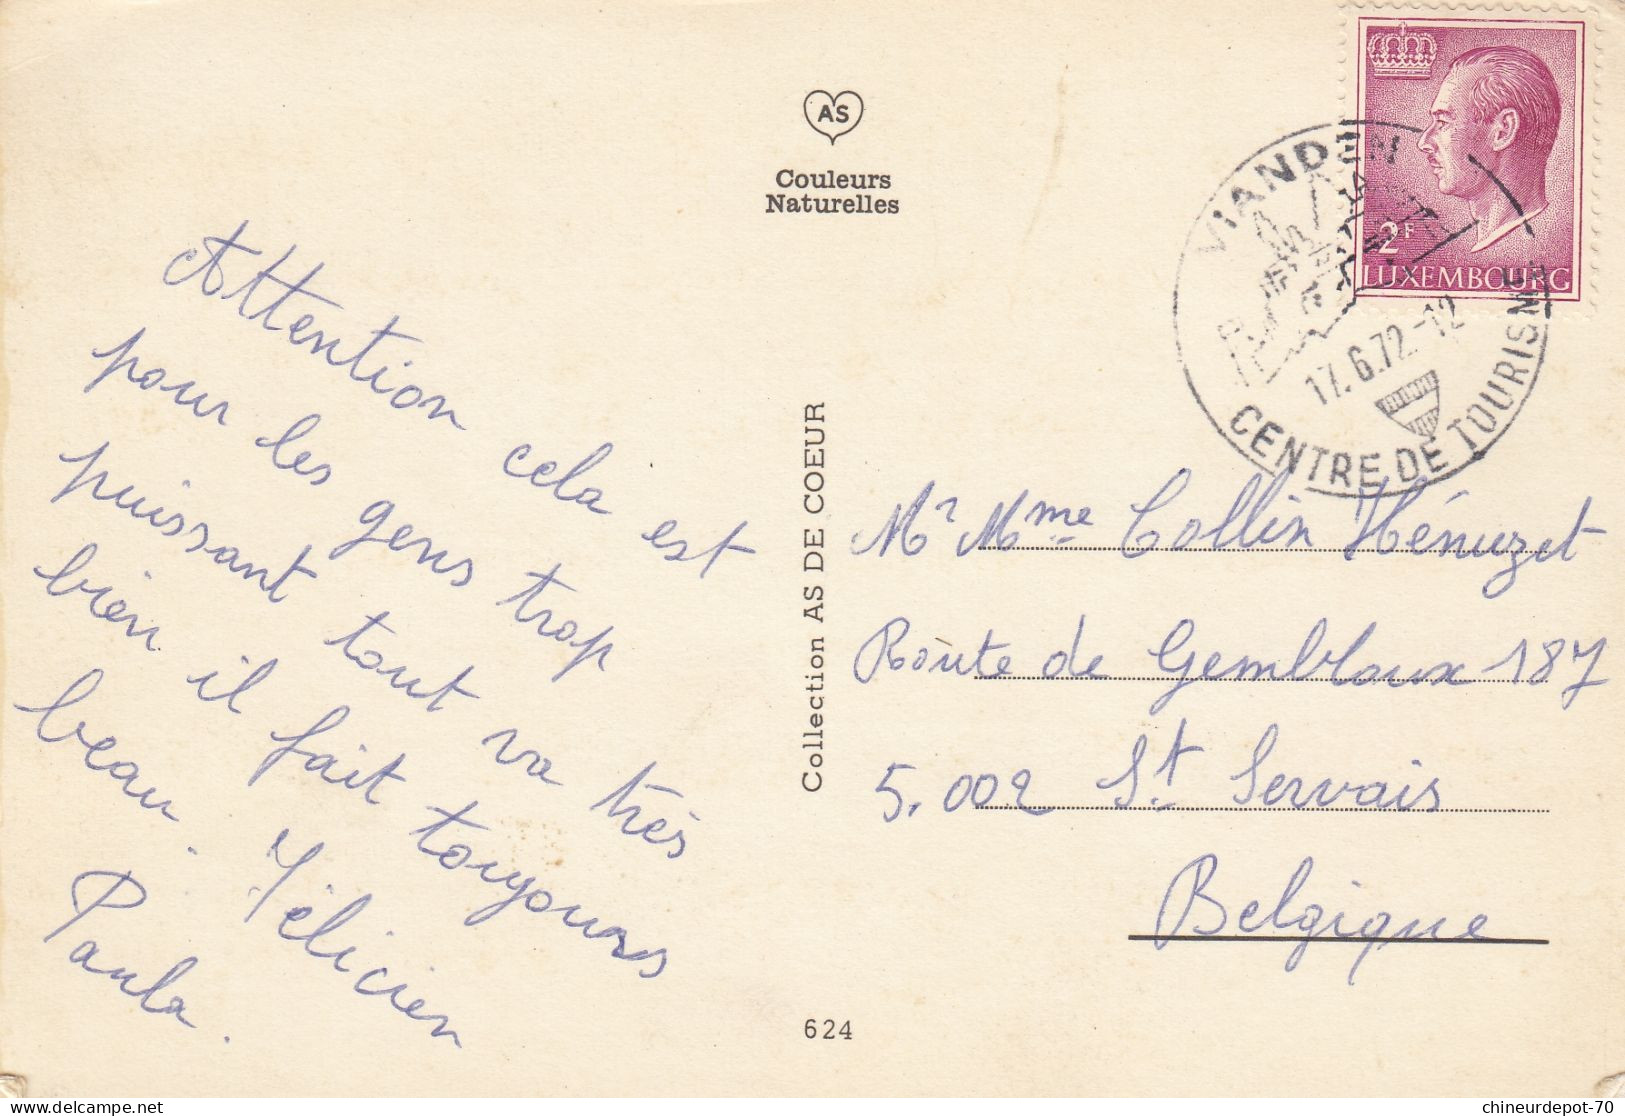 AS
Couleurs
Naturelles
Attention cela est
pour les gens trop
puissant tout va très
bien il fait toujours
beau. Félicien
Paula.
Collection AS DE COEUR
624
2F
LUXEMBOURG
VIANDEN
17.6.72-12
CENTRE DE TOURISME
Mr Mme Collin Hénuzet
Route de Gembloux 187
5.002 St. Servais
Belgique
delcampe.net
chineurdepot-70